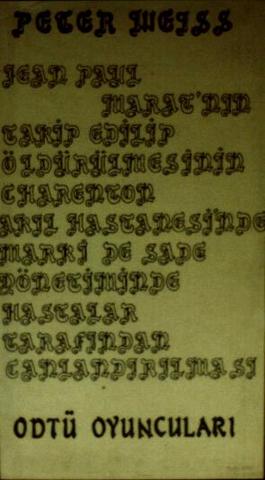 PETER WEISS
JEAN PAUL
MARAT'NIN
TAKİP EDİLİP
ÖLDÜRÜLMESİNİN
CHARENTON
AKIL HASTANESİ'NDE
MARKİ DE SADE
YÖNETİMİNDE
HASTALAR
TARAFINDAN
CANLANDIRILMASI
ODTÜ OYUNCULARI